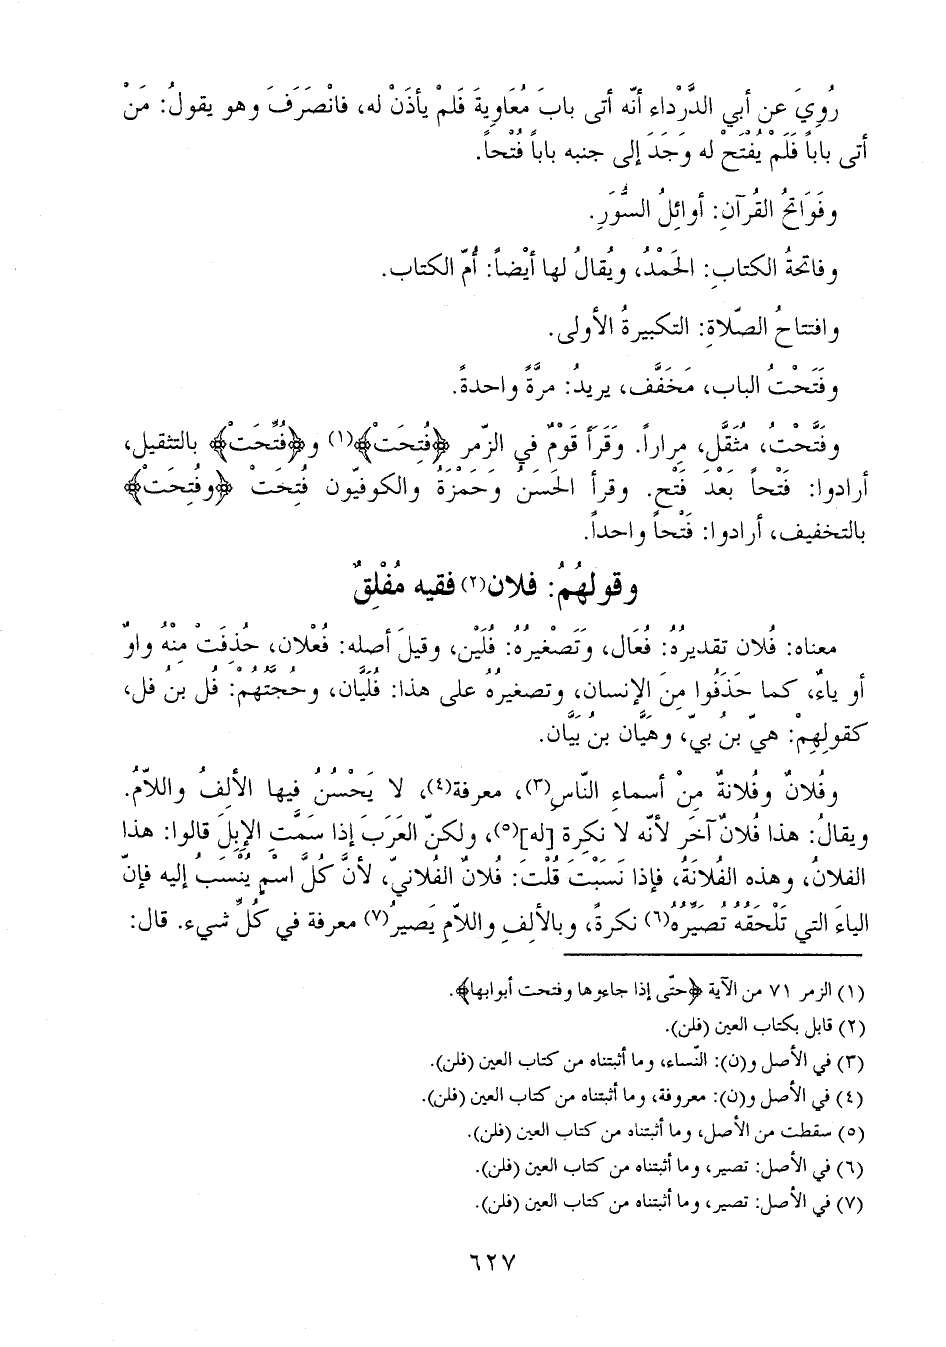 رُوِيَ عن أبي الدَّرْداء أنّه أتى بابَ مُعَاوِيةَ فَلمْ يأذَنْ له، فانْصرَفَ وهو يقولُ: مَنْ
أتى باباً فَلَمْ يُفْتَحْ له وَجَدَ إلى جنبه باباً فُتُحاً.
وفَوَاتحُ القُرآنِ: أوائِلُ السُّوَرِ.
وفاتحةُ الكتابِ: الحَمْدُ، ويُقالُ لها أيْضاً: أُمّ الكتاب.
وافتتاحُ الصّلاةِ: التكبيرةُ الأولى.
وفَتَحْتُ الباب، مَخفَّف، يريدُ: مرَّةً واحدةً.
وفَتَّحْتُ، مثُقَّل، مراراً. وقَرَأَ قَوْمٌ في الزّمر ﴿فُتِحَتْ﴾(١) و﴿فُتِّحَتْ﴾ بالتثقيل،
أرادوا: فَتْحاً بَعْدَ فَتْحٍ. وقرأ الحَسَنُ وَحَمْزَةُ والكوفيّون فُتِحَتْ ﴿وفُتِحَتْ﴾
بالتخفيف، أرادوا: فَتْحاً واحداً.
وقولهُمُ: فلان(٢) فقيه مُفْلِقٌ
معناه: فُلان تقديرُهُ: فُعَال، وَتَصْغيرُهُ: فُلَيْن، وقيلَ أصله: فُعْلان، حُذِفَتْ مِنْهُ واوٌ
أو ياءٌ، كما حَذَفُوا مِنَ الإنسان، وتصغيرُهُ على هذا: فُليَّان، وحُجَّتُهُمْ: فُل بن فُل،
كقولِهِمْ: هيّ بنُ بيّ، وهَيَّان بنُ بَيَّان.
وفُلانٌ وفُلانةٌ مِنْ أسماءِ النّاسِ(٣)، معرفة(٤)، لا يَحْسُنُ فيها الألِفُ واللاّمُ.
ويقالُ: هذا فُلانٌ آخَر لأنّه لا نكرة [له](٥)، ولكنّ العَرَبَ إذا سَمَّتِ الإبِلَ قالوا: هذا
الفلانُ، وهذه الفُلانَةُ، فإذا نَسَبْتَ قُلْتَ: فُلانٌ الفُلانيّ، لأنَّ كُلَّ اسْمٍ يُنْسَبُ إليه فإنّ
الياءَ التي تَلْحَقُهُ تصيِّرُهُ(٦) نكرةً، وبالألِفِ واللاّمِ يَصيرُ(٧) معرفة في كُلِّ شيء. قال:
(١) الزمر ٧١ من الآية ﴿حتّى إذا جاءوها وفتحت أبوابها﴾.
(٢) قابل بكتاب العين (فلن).
(٣) في الأصل و(ن): النّساء، وما أثبتناه من كتاب العين (فلن).
(٤) في الأصل و(ن): معروفة، وما أثبتناه من كتاب العين (فلن).
(٥) سقطت من الأصل، وما أثبتناه من كتاب العين (فلن).
(٦) في الأصل: تصير، وما أثبتناه من كتاب العين (فلن).
(٧) في الأصل: تصير، وما أثبتناه من كتاب العين (فلن).
٦٢٧